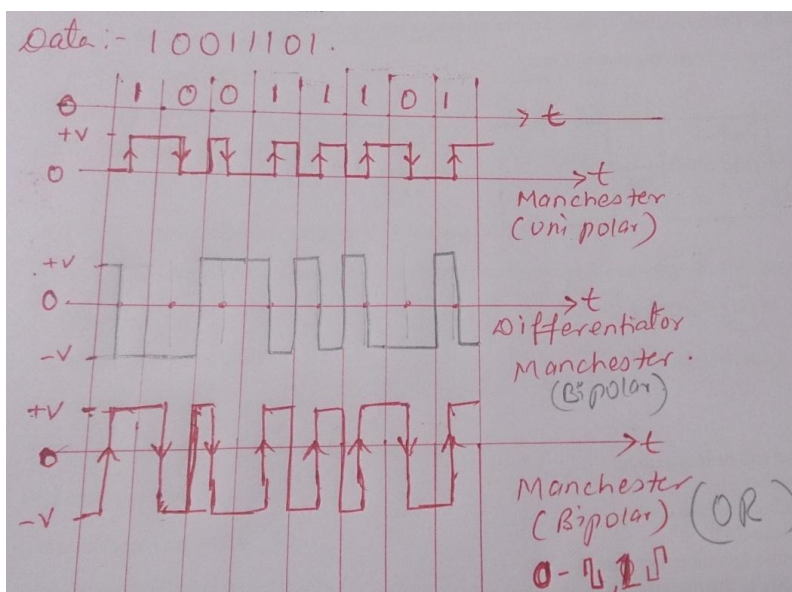 Data:- 10011101.
1 0 0 1 1 1 0 1
0 t
+V
0 t
Manchester
(uni polar)
+V
0 t
-V
Differentiator
Manchester.
(Bipolar)
+V
0 t
-V
Manchester
(Bipolar) (OR)
0- 1